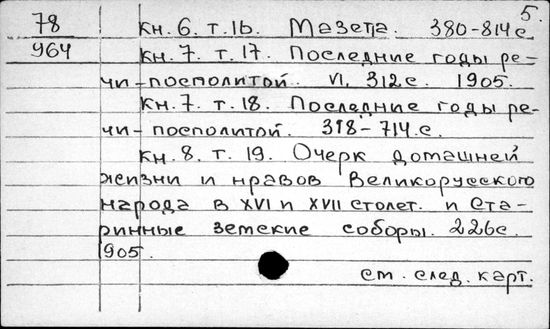 5.
78 Кн. 6. т. 16. Мазепа. 380-814 с.
964 Кн. 7. т. 17. Последние годы ре-
чи-посполитой. VI, 312 с. 1905.
Кн. 7. т. 18. Последние годы ре-
чи-посполитой. 318-714 с.
Кн. 8. т. 19. Очерк домашней
жизни и нравов Великорусского
народа в XVI и XVII столет. и Ста-
ринные земские соборы. 226 с.
1905.
см. след. карт.